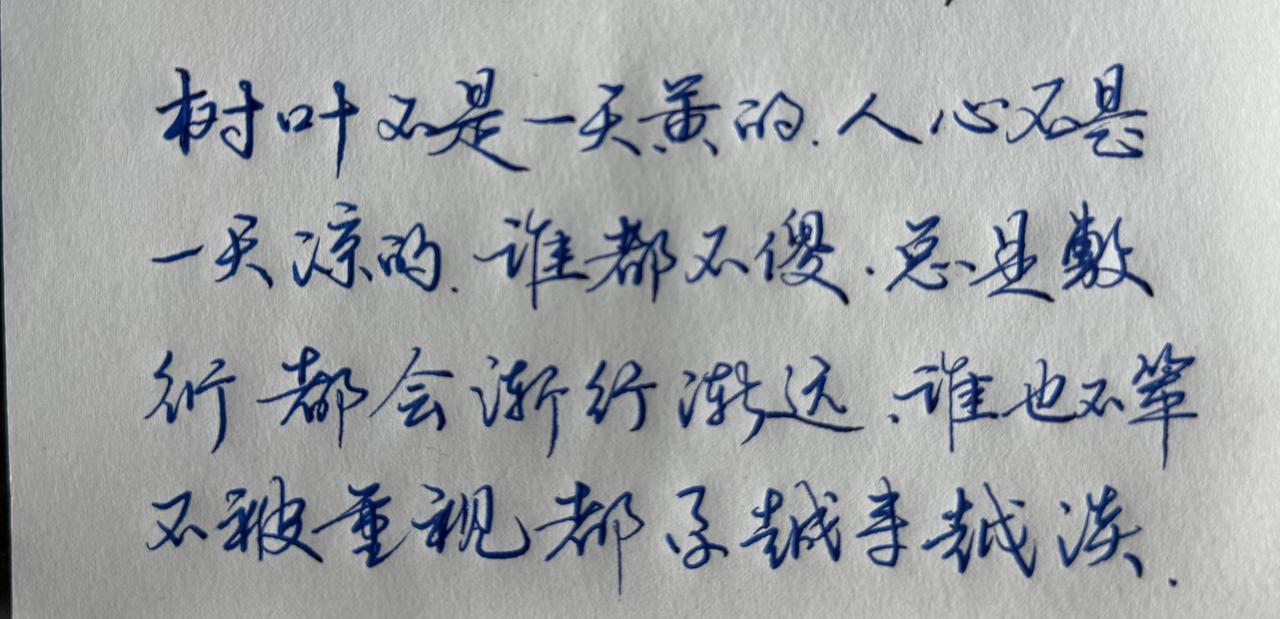 树叶不是一天黄的.人心不是
一天凉的.谁都不傻.总是敷
衍都会渐行渐远.谁也不笨
不被重视都会越来越淡.